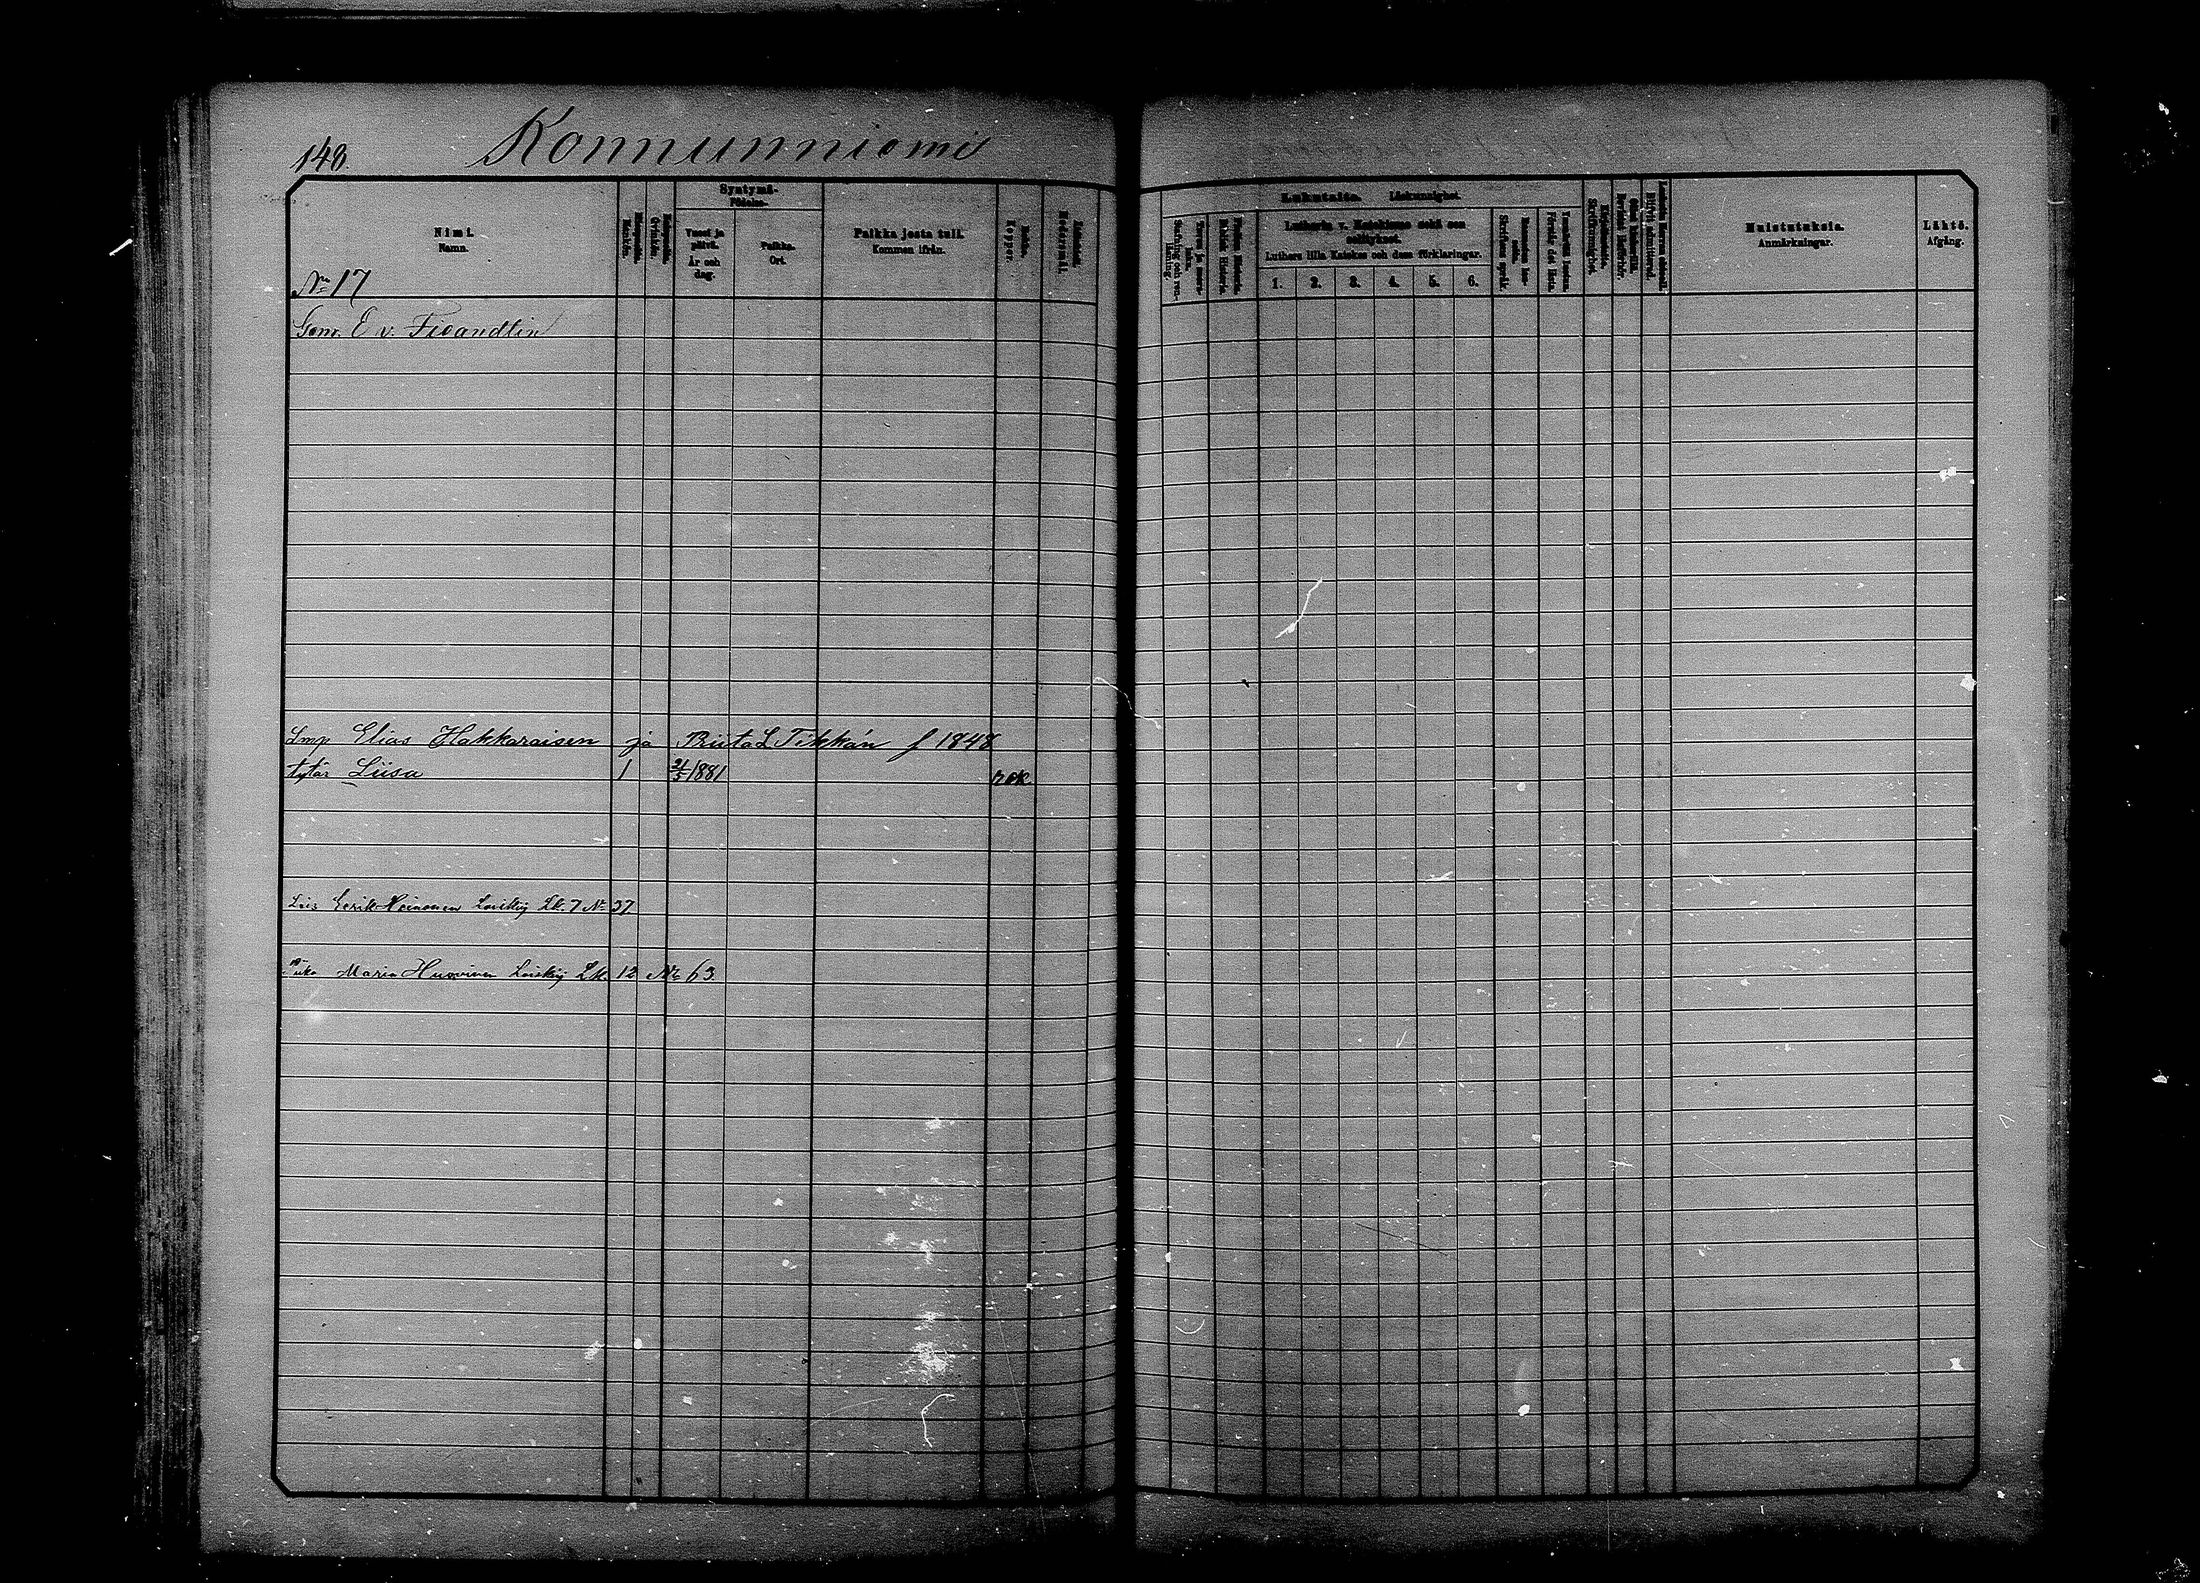 148 Konnunniemi
Syntymä-
Födelse.
Nimi.
Namn.
Vuosi ja
päivä.
År och
dag.
Paikka.
Ort.
Paikka josta tuli.
Kommen ifrån.
Rokko.
Koppor.
Nº 17
Gem. E v. Fieandtin
Lmp Elias Hakkaraisen ja Riita L Tikkán f 1848
tytär Liisa 1 21/5 1881 rok
Lois Eerik Heinonen Loiskirj Lk. 7 Nº 37
Piika Maria Huovinen Loiskirj Lk. 12 Nº 63.
Lukutaito. Läskunnighet.
Lutherin v. Katekismo sekä sen
selitykset.
Luthers lilla Katekes och dess förklaringar.
1. 2. 3. 4. 5. 6.
Muistutuksia.
Anmärkningar.
Lähtö.
Afgång.